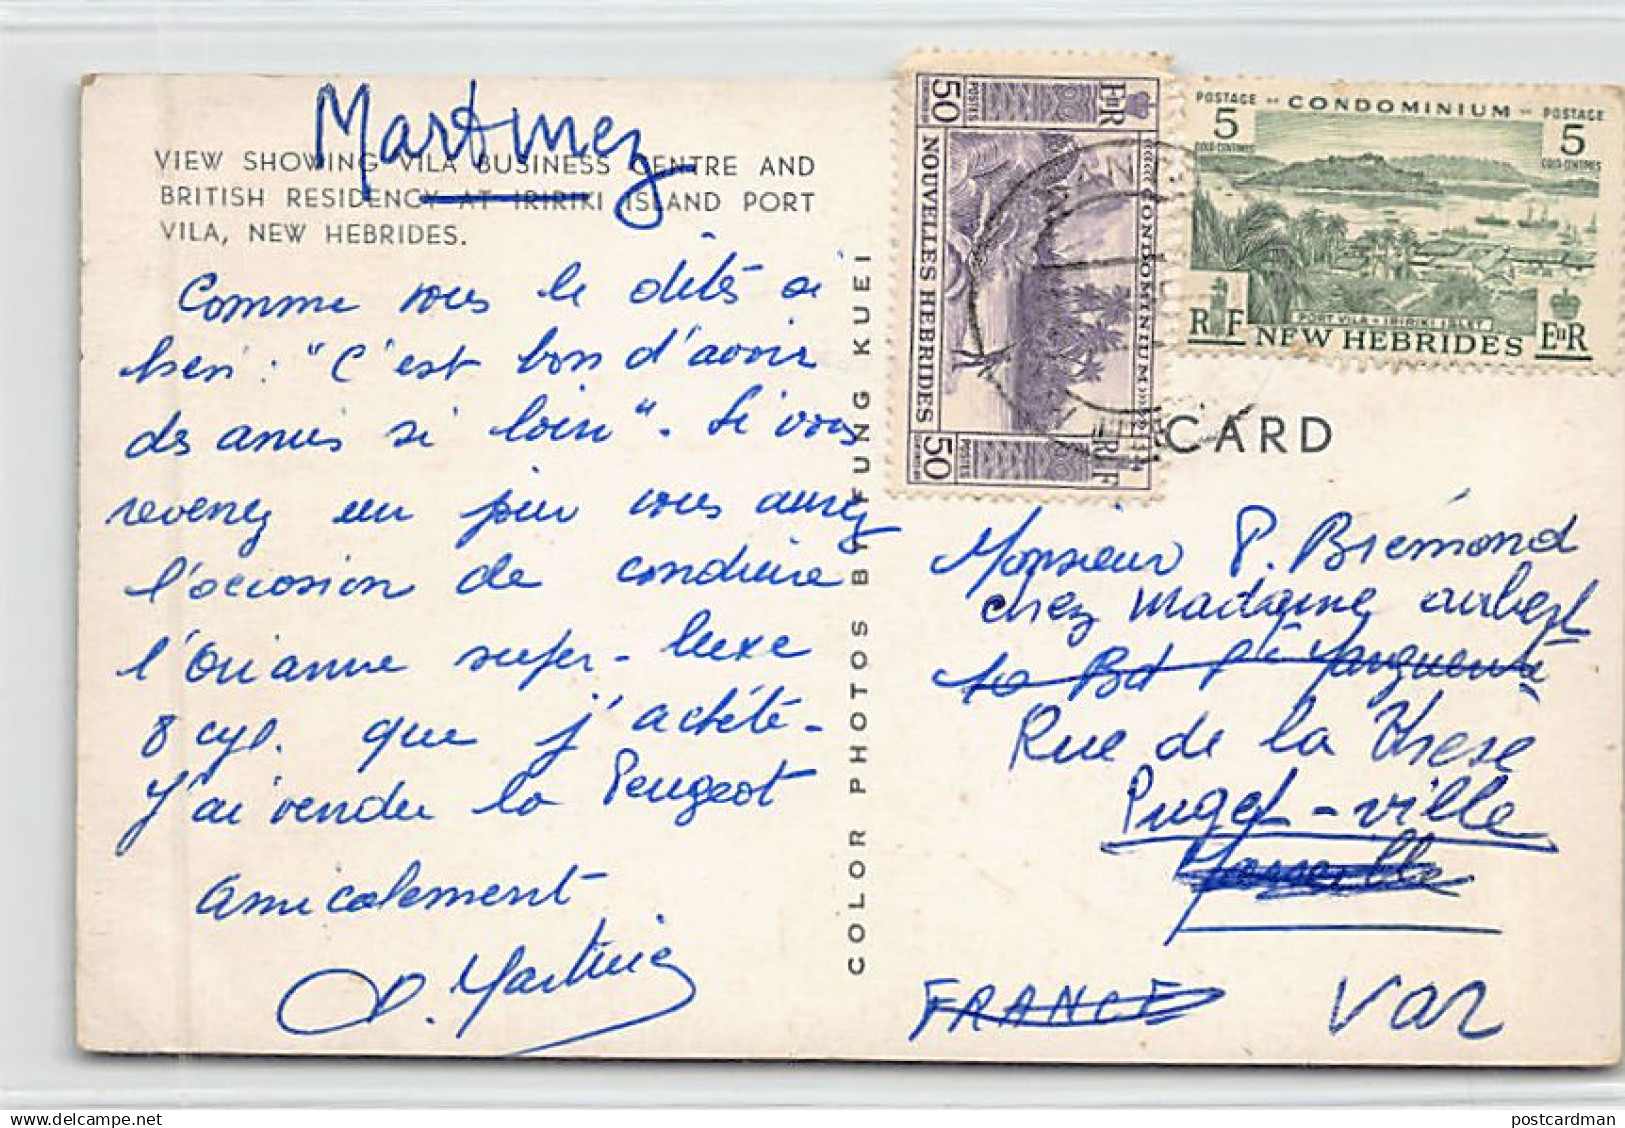 Martinez
VIEW SHOWING VILA BUSINESS CENTRE AND
BRITISH RESIDENCY AT IRIRIKI ISLAND PORT
VILA, NEW HEBRIDES.
Comme vous le dites si
bien : "C'est bon d'avoir
des amis si loin". Si vous
revenez un jour vous aurez
l'occasion de conduire
l'Orianne super-luxe
8 cyl. que j'achété-
J'ai vendu la Peugeot
amicalement
Martinez
COLOR PHOTOS BY FUNG KUEI
50 POSTES EIIR
NOUVELLES HEBRIDES
CONDOMINIUM
50 POSTES RF
POSTAGE CONDOMINIUM POSTAGE
5 5
GOLD CENTIMES GOLD CENTIMES
PORT VILA - IRIRIKI ISLET
RF NEW HEBRIDES EIIR
CARD
Monsieur P. Brémond
chez Madame
Bd Ste Marguerite
Rue de la
Puget-ville
Marseille
FRANCE Var
postcardman